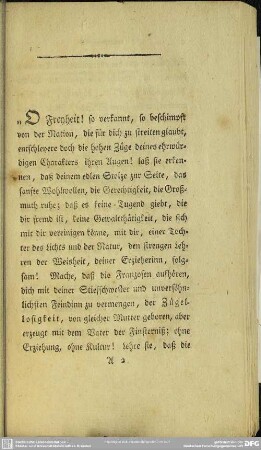 „O Freyheit! so verkannt, so beschimpft
von der Nation, die für dich zu streiten glaubt,
entschleyere doch die hohen Züge deines ehrwür-
digen Charakters ihren Augen! laß sie erken-
nen, daß deinem edlen Stolze zur Seite, das
sanfte Wohlwollen, die Gerechtigkeit, die Groß-
muth ruhe; daß es keine Tugend giebt, die
dir fremd ist, keine Gewaltthätigkeit, die sich
mit dir vereinigen könne, mit dir, einer Toch-
ter des Lichts und der Natur, den strengen Leh-
ren der Weisheit, deiner Erzieherinn, folg-
sam! Mache, daß die Franzosen aufhören,
dich mit deiner Stiefschwester und unversöhn-
lichsten Feindinn zu vermengen, der Zügel-
losigkeit, von gleicher Mutter geboren, aber
erzeugt mit dem Vater der Finsterniß; ohne
Erziehung, ohne Kultur! Lehre sie, daß die
A 2